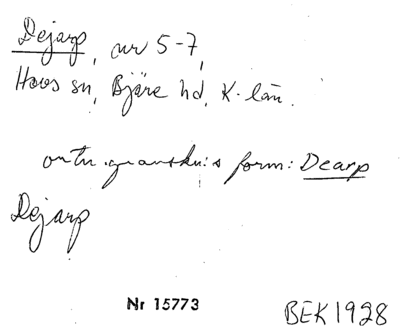 Dejarp, nr 5-7,
Hovs sn, Bjäre hd, K-län.
ortn.granskn:s form: Dearp
Dejarp
Nr 15773
BEK 1928